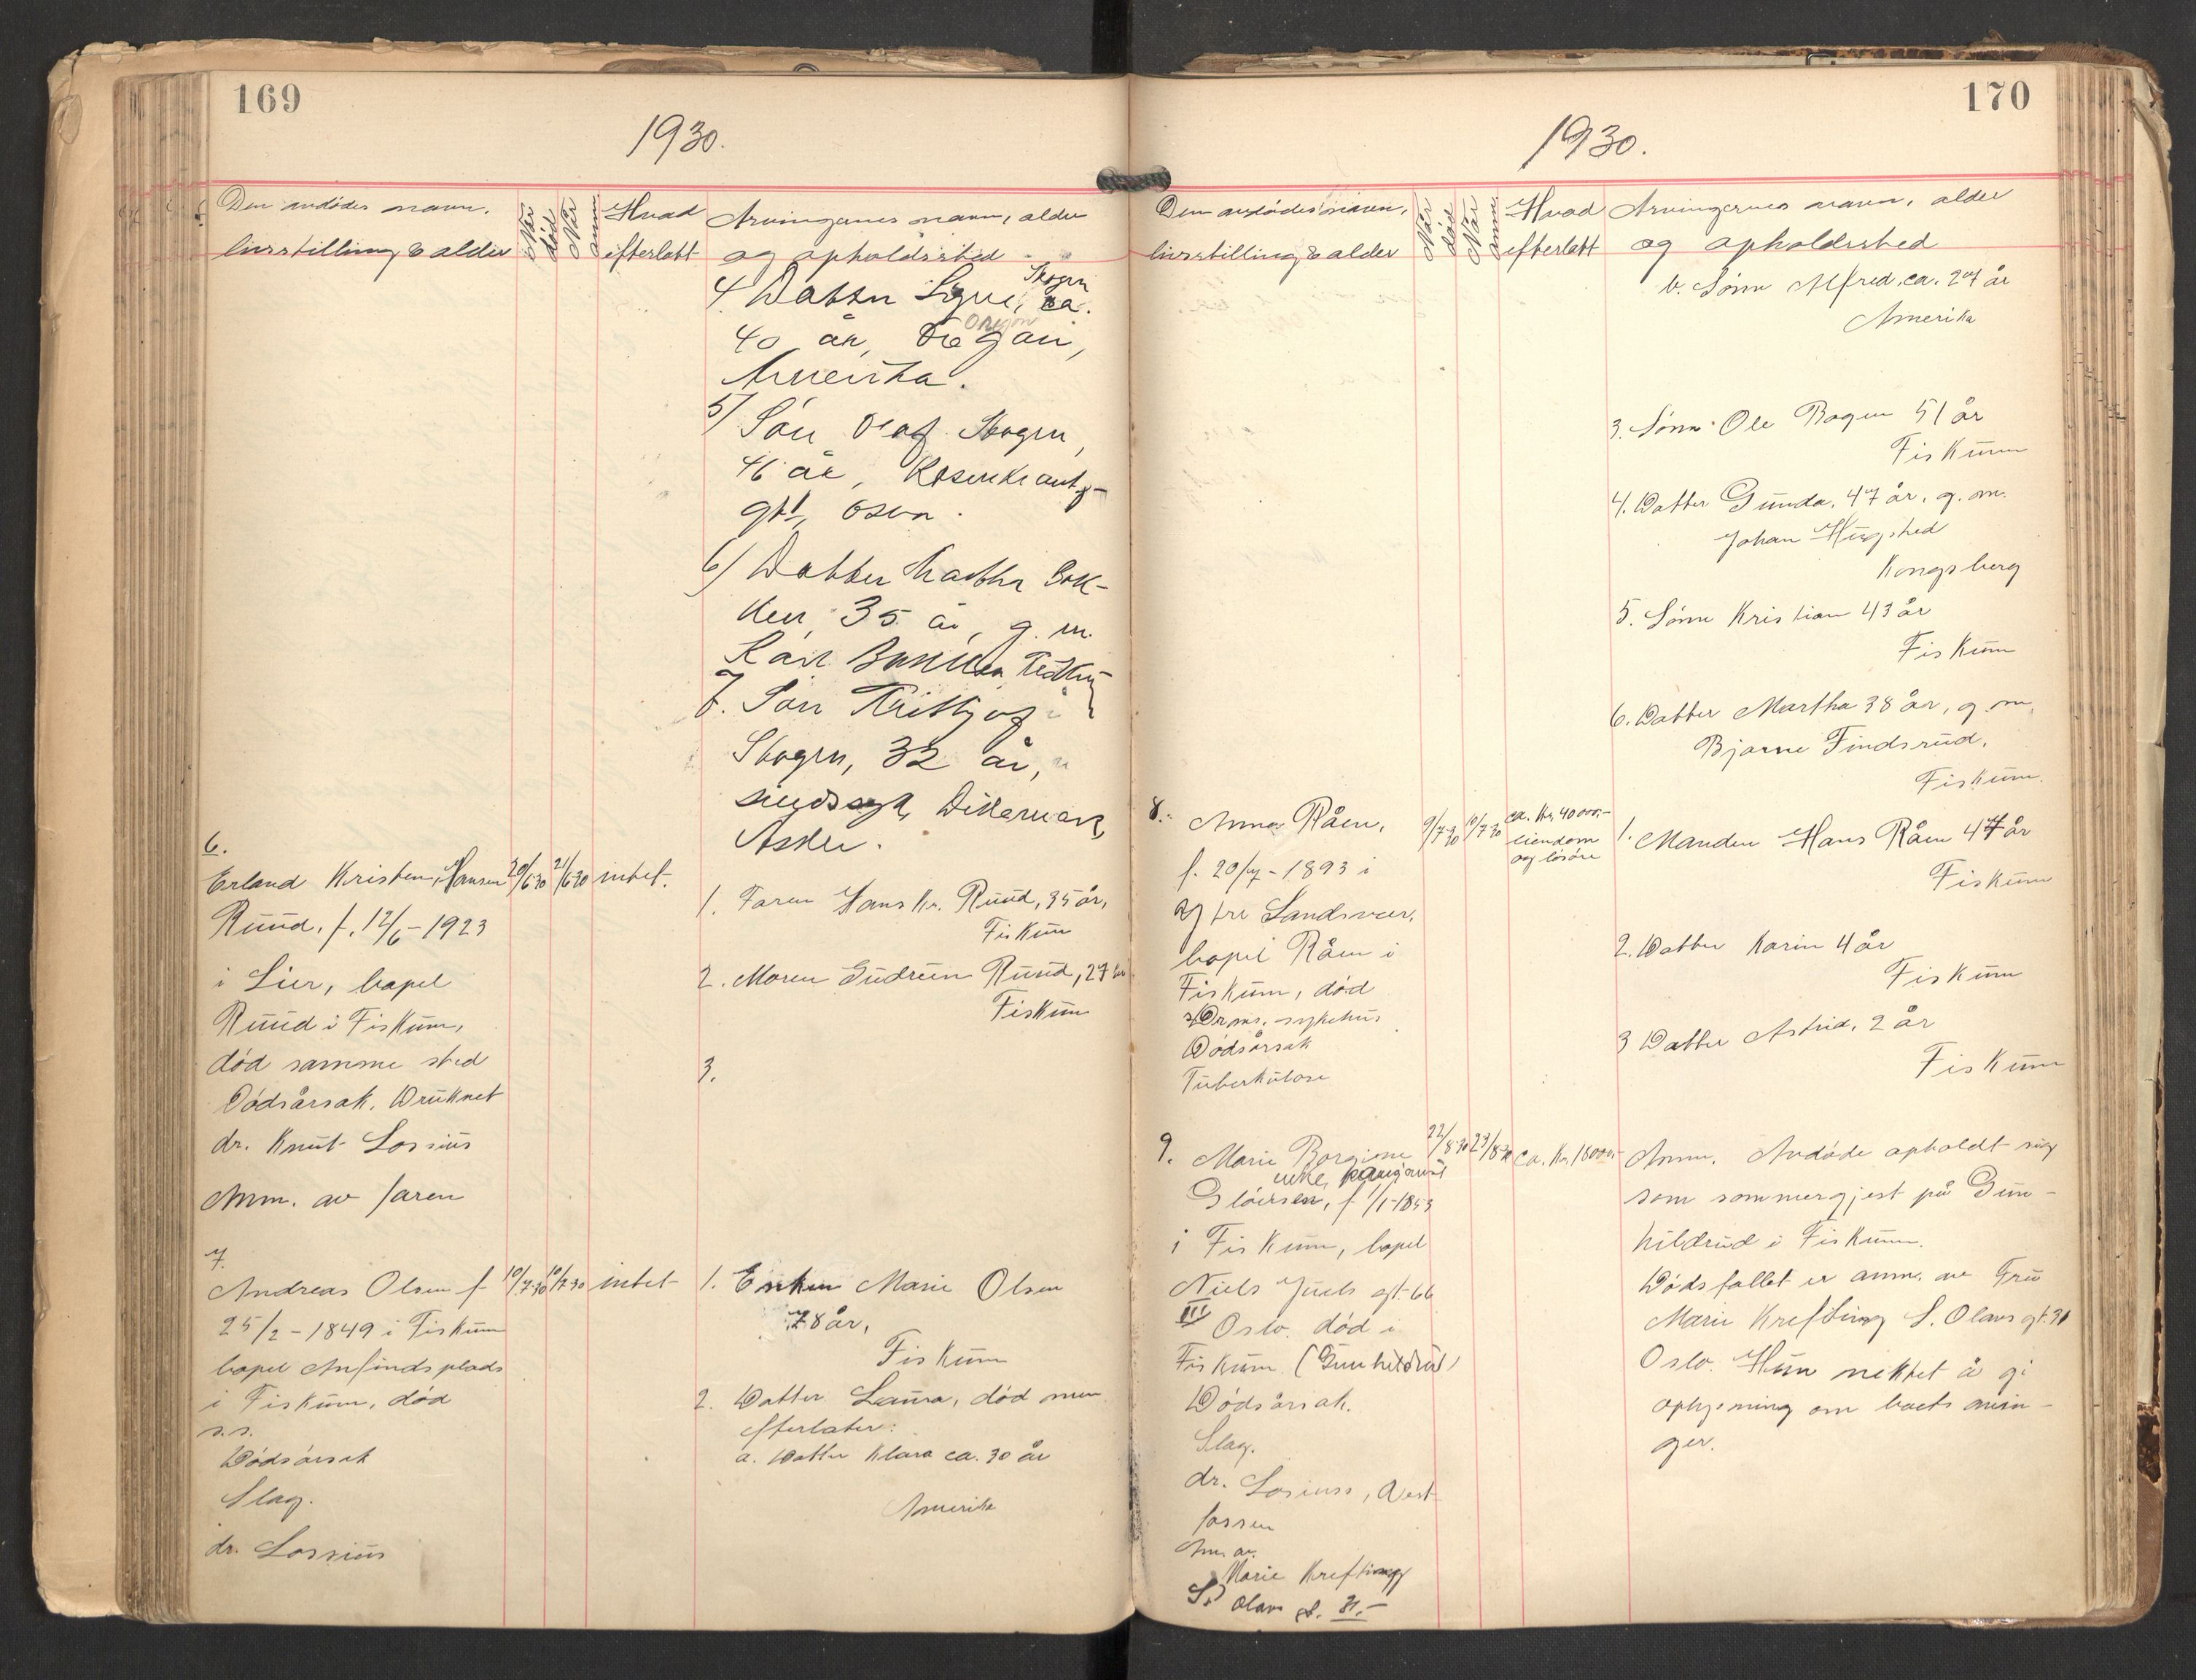 169
1930.
Den avdødes navn,
livsstilling & alder
Når død
Når anm.
Hvad
efterlatt
Arvingernes navn, alder
og opholdssted
4. Datter Signe, Skogen ca.
40 år, Oregon
Amerika.
5/ Søn Olaf Skogen,
46 år, Rosenkrantz-
gt , Oslo.
6/ Datter Martha Bak-
ken 35 år, g. m.
Karl Bakken Fiskum
7. Søn Fritjof
Skogen, 32 år,
sindssyk, Dikemark,
Asker.
6.
Erland Kristen Hansen 20/6 30 21/6 30 intet.
Ruud, f. 12/6 - 1923
i Lier, bopel
Ruud i Fiskum,
død samme sted
Dødsårsak. Druknet
dr. Knut Lossius
Anm. av faren
1. Faren Hans Kr. Ruud, 35 år,
Fiskum
2. Moren Gudrun Ruud, 27 år
Fiskum
3.
7.
Andreas Olsen f. 10/7 30 10/7 30 intet
25/2 - 1849 i Fiskum
bopel Anfinds plads
i Fiskum, død
s.s.
Dødsårsak
Slag.
dr. Lossius
1. Enken Marie Olsen
78 år,
Fiskum
2. Datter Laura, død men
efterlater:
a. Datter Klara ca. 30 år
Amerika
170
1930.
Den avdødes navn,
livsstilling & alder
Når død
Når anm.
Hvad
efterlatt
Arvingernes navn, alder
og opholdssted
b. Sønn Alfred, ca. 27 år
Amerika
3. Sønn Ole Bogen 51 år
Fiskum
4. Datter Gunda, 47 år, g. m.
Johan Hugsted
Kongsberg
5. Sønn Kristian 43 år
Fiskum
6. Datter Martha 38 år, g. m.
Bjarne Findsrud,
Fiskum.
8. Anna Råen, 9/7 30 10/7 30 ca. kr. 40 000,-
eiendom
og løsøre
f. 20/7 - 1893 i
Ytre Sandsvær,
bopel Råen i
Fiskum, død
Drams. sykehus
Dødsårsak
Tuberkulose
1. Manden Hans Råen 47 år
Fiskum
2. Datter Karin 4 år
Fiskum
3 Datter Astrid, 2 år
Fiskum
9. Marie Borgine 22/8 30 23/8 30 ca. kr. 18000.-
enke,
Gløersen, f. 1/1-1853
i Fiskum, bopel
Niels Juels gt. 66
III Oslo. død i
Fiskum (Gunhildrud)
Dødsårsak.
Slag.
dr. Lossius, Vest-
fossen
Anm. av.
Marie Krefting
St Olavs gt. 31.-
Anm. Avdøde opholdt sig
som sommergjest på Gun-
hildrud i Fiskum.
Dødsfallet er anm. av Fru
Marie Krefting S. Olavs gt. 31
Oslo. Hun nektet å gi
oplysning om boets arvin-
ger.